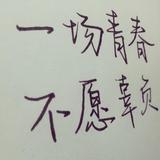 一场青春
不愿辜负